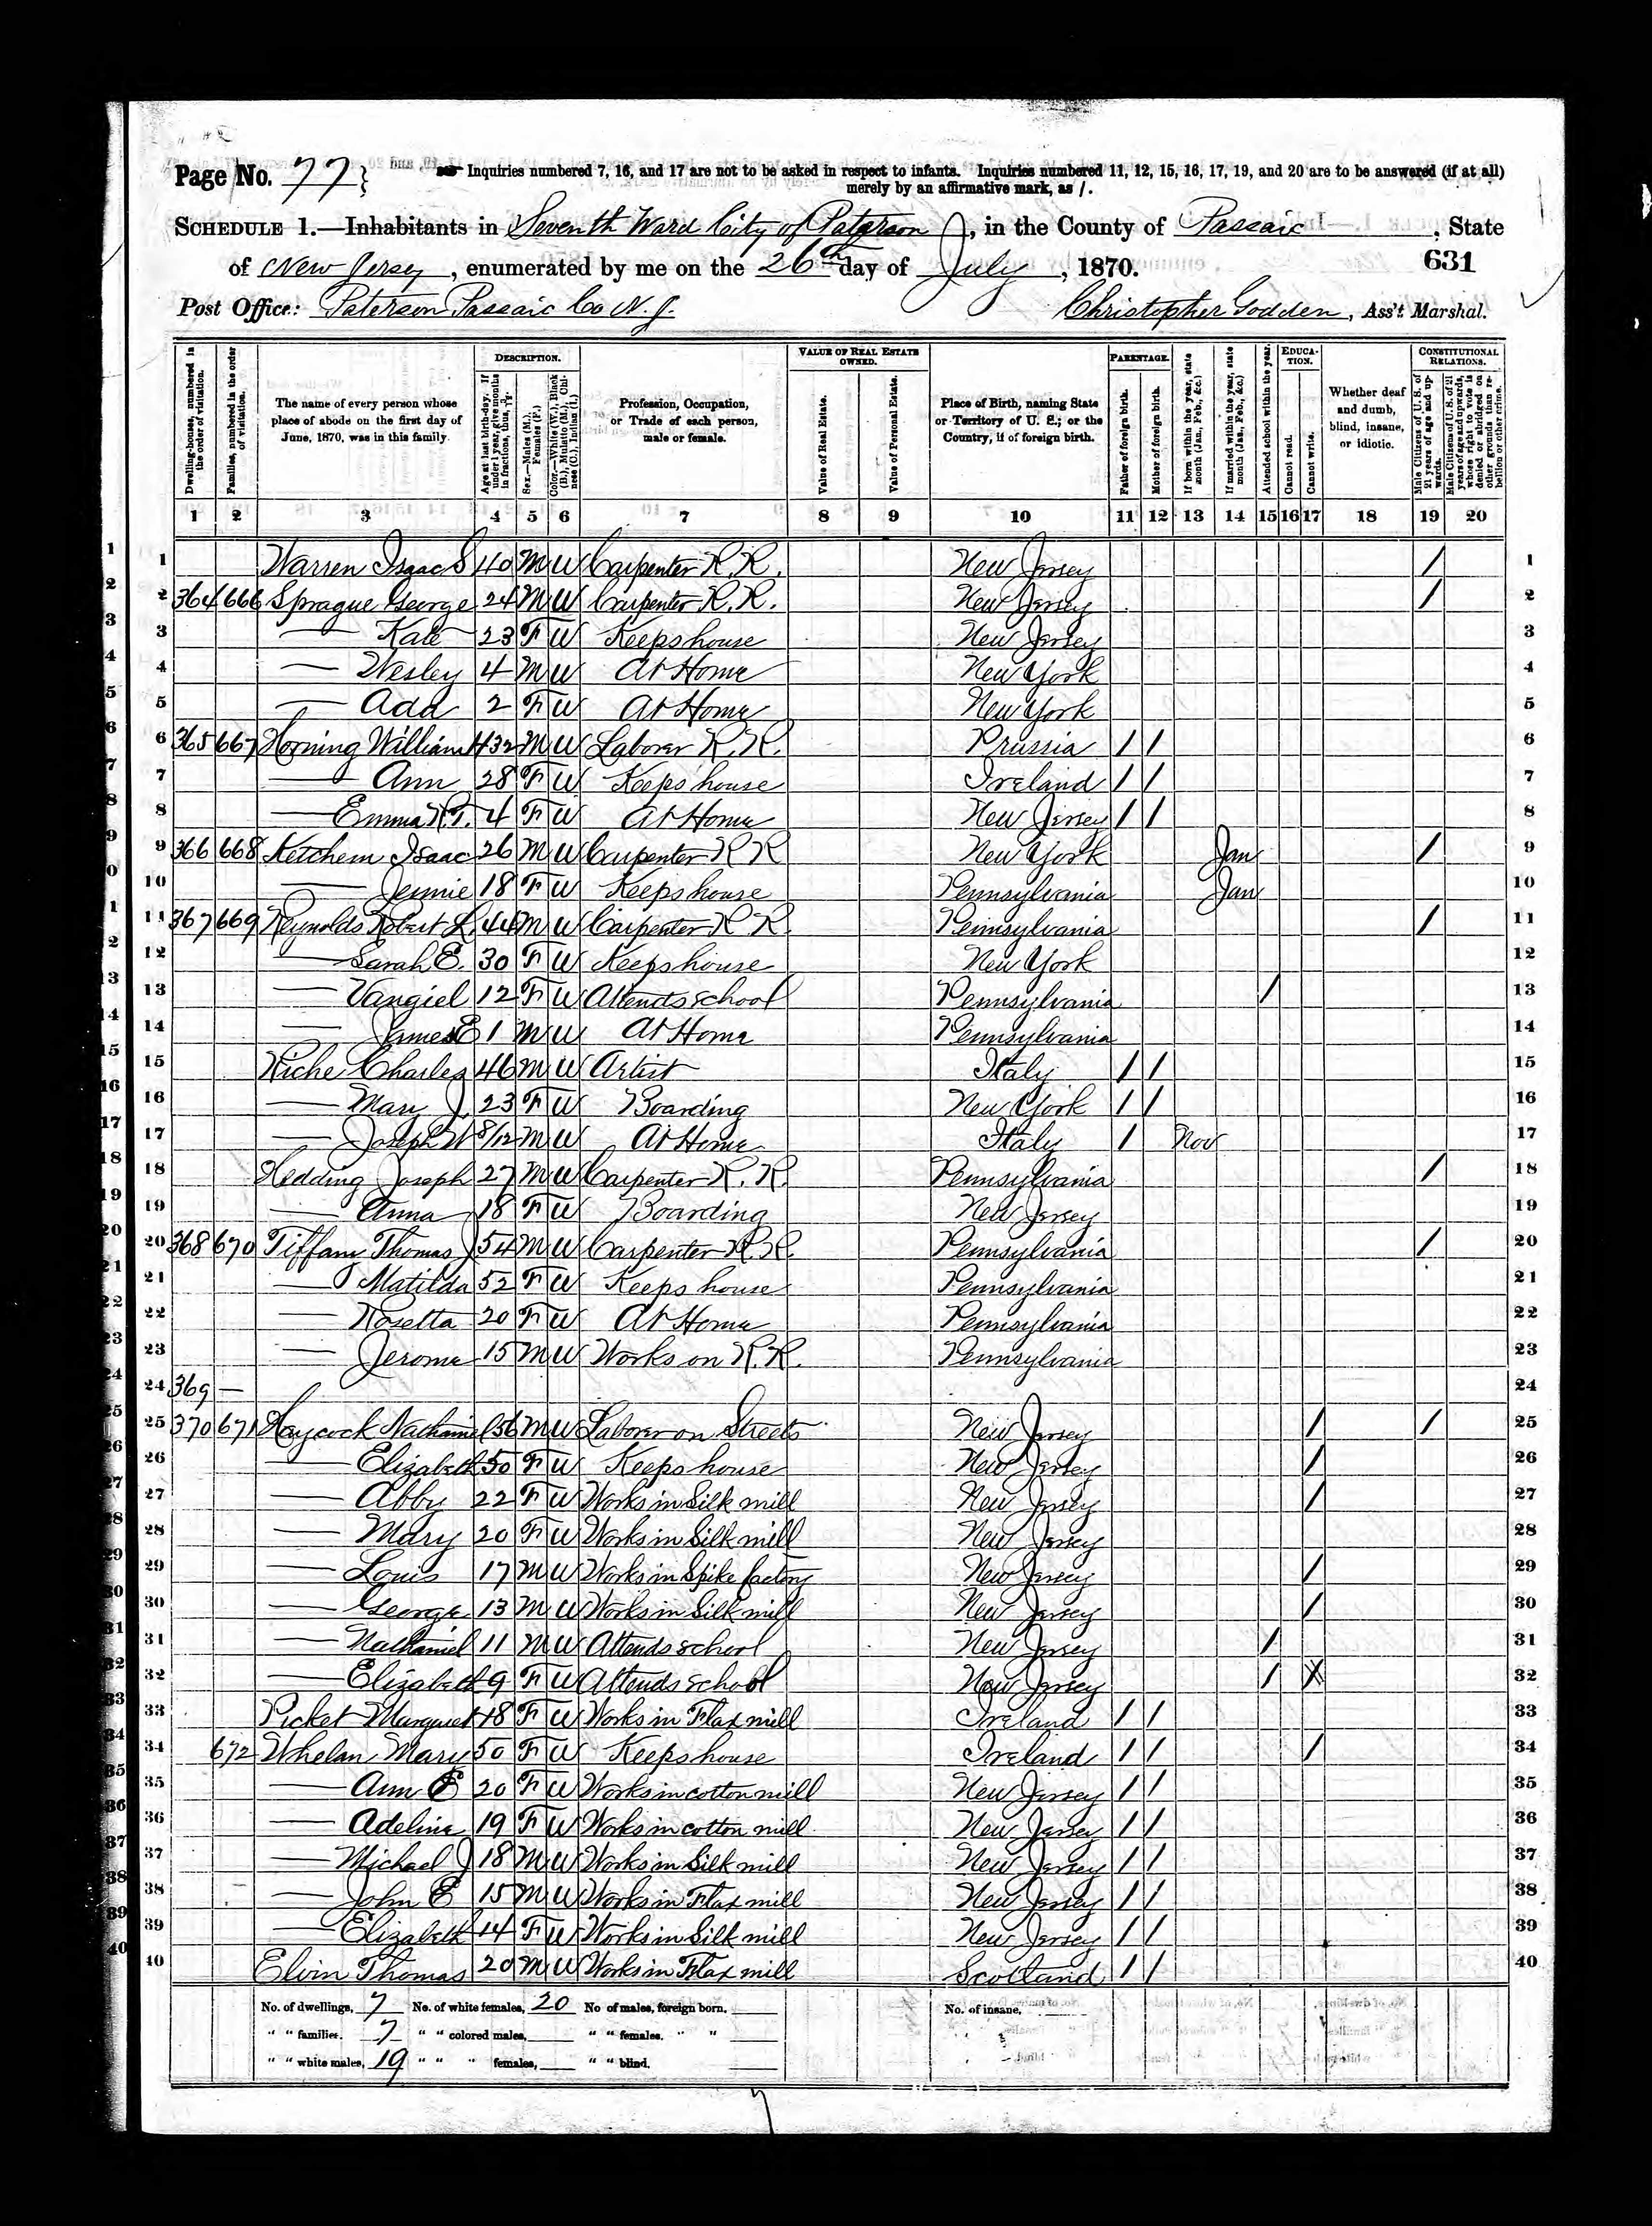 Page No. 77
Inquiries numbered 7, 16, and 17 are not to be asked in respect to infants. Inquiries numbered 11, 12, 15, 16, 17, 19, and 20 are to be answered (if at all)
merely by an affirmative mark, as /.
SCHEDULE 1.—Inhabitants in Seventh Ward City of Paterson, in the County of Passaic, State
of New Jersey, enumerated by me on the 26th day of July, 1870.
631
Post Office: Paterson Passaic Co N.J.
Christopher Godden, Ass't Marshal.
Dwelling-houses, numbered in the order of visitation.
Families, numbered in the order of visitation.
The name of every person whose place of abode on the first day of June, 1870, was in this family.
DESCRIPTION.
Age at last birth-day. If under 1 year, give months in fractions, thus,
Sex.—Males (M.), Females (F.)
Color.—White (W.), Black (B.), Mulatto (M.), Chinese (C.), Indian (I.)
Profession, Occupation, or Trade of each person, male or female.
VALUE OF REAL ESTATE OWNED.
Value of Real Estate.
Value of Personal Estate.
Place of Birth, naming State or Territory of U. S.; or the Country, if of foreign birth.
PARENTAGE.
Father of foreign birth.
Mother of foreign birth.
If born within the year, state month (Jan., Feb., &c.)
If married within the year, state month (Jan., Feb., &c.)
Attended school within the year.
EDUCATION.
Cannot read.
Cannot write.
Whether deaf and dumb, blind, insane, or idiotic.
CONSTITUTIONAL RELATIONS.
Male Citizens of U. S. of 21 years of age and upwards.
Male Citizens of U. S. of 21 years of age and upwards, whose right to vote is denied or abridged on other grounds than rebellion or other crime.
1 2 3 4 5 6 7 8 9 10 11 12 13 14 15 16 17 18 19 20
1 Warren Isaac S 40 M W Carpenter R.R. New Jersey / 1
2 364 666 Sprague George 24 M W Carpenter R.R. New Jersey / 2
3 — Kate 23 F W Keeps house New Jersey 3
4 — Wesley 4 M W At Home New York 4
5 — Ada 2 F W At Home New York 5
6 365 667 Horning William H 32 M W Laborer R.R. Prussia / / 6
7 — Ann 28 F W Keeps house Ireland / / 7
8 — Emma 4 F W At Home New Jersey / / 8
9 366 668 Ketchem Isaac 26 M W Carpenter R R New York Jan / 9
10 — Jennie 18 F W Keeps house Pennsylvania Jan 10
11 367 669 Reynolds Robert L. 44 M W Carpenter R R Pennsylvania / 11
12 — Sarah E. 30 F W Keeps house New York 12
13 — Vangiel 12 F W Attends school Pennsylvania / 13
14 — James E 1 M W At Home Pennsylvania 14
15 Riche Charles 46 M W Artist Italy / / 15
16 — Mary J 23 F W Boarding New York / / 16
17 — Joseph W 8/12 M W At Home Italy / Nov 17
18 Hedding Joseph 27 M W Carpenter R.R. Pennsylvania / 18
19 — Anna 18 F W Boarding New Jersey 19
20 368 670 Tiffany Thomas J 54 M W Carpenter R.R. Pennsylvania / 20
21 — Matilda 52 F W Keeps house Pennsylvania 21
22 — Rosetta 20 F W At Home Pennsylvania 22
23 — Jerome 15 M W Works on R.R. Pennsylvania 23
24 369 — 24
25 370 671 Haycock Nathaniel 56 M W Laborer on Streets New Jersey / / 25
26 — Elizabeth 50 F W Keeps house New Jersey / 26
27 — Abby 22 F W Works in Silk mill New Jersey / 27
28 — Mary 20 F W Works in Silk mill New Jersey 28
29 — Louis 17 M W Works in Spike factory New Jersey / 29
30 — George 13 M W Works in Silk mill New Jersey / 30
31 — Nathaniel 11 M W Attends school New Jersey / 31
32 — Elizabeth 9 F W Attends school New Jersey / X 32
33 Picket Margaret 18 F W Works in Flax mill Ireland / / 33
34 672 Whelan Mary 50 F W Keeps house Ireland / / / 34
35 — Ann E 20 F W Works in cotton mill New Jersey / / 35
36 — Adeline 19 F W Works in cotton mill New Jersey / / 36
37 — Michael J 18 M W Works in Silk mill New Jersey / / 37
38 — John E 15 M W Works in Flax mill New Jersey / / 38
39 — Elizabeth 14 F W Works in Silk mill New Jersey / / 39
40 Elvin Thomas 20 M W Works in Flax mill Scotland / / 40
No. of dwellings, 7 No. of white females, 20 No of males, foreign born. No. of insane,
" " families. 7 " " colored males, " " females. " "
" " white males, 19 " " " females, " " blind.